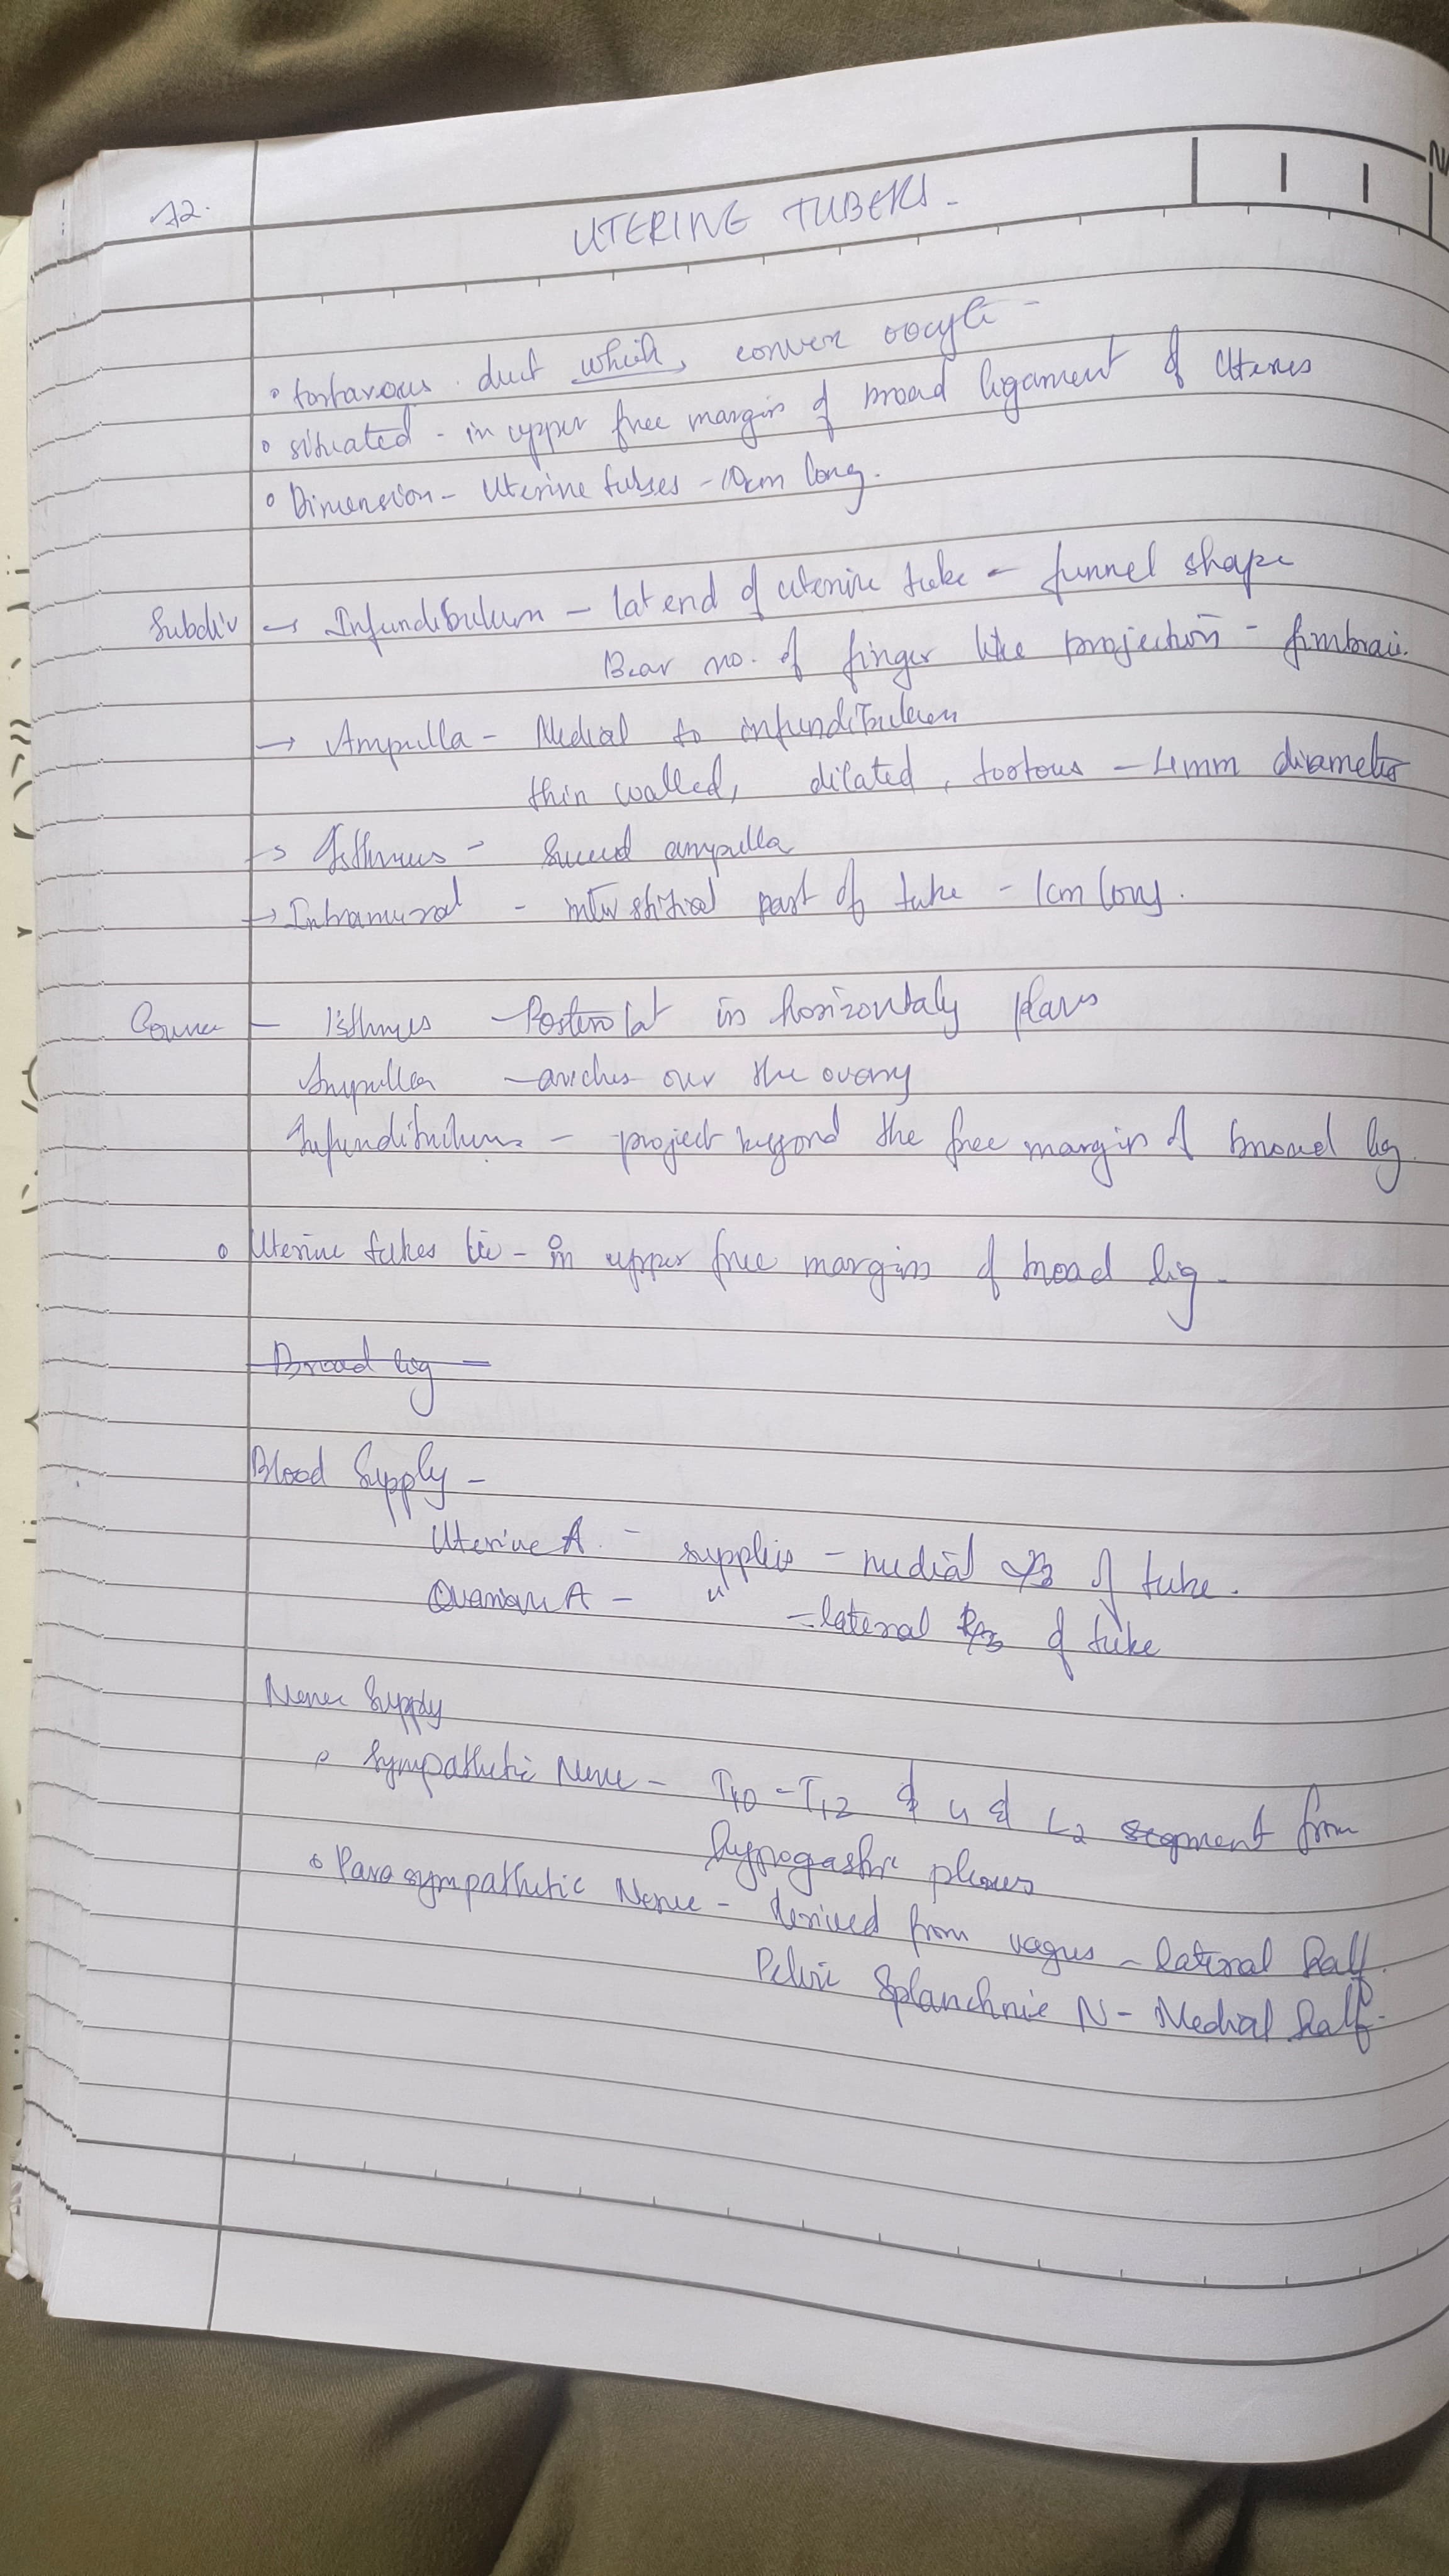 72.
UTERINE TUBERS.
• tortarous duct which, convex oocyte -
• situated - in upper free margin of broad ligament of Uterus
• Dimension - Uterine tubes - 10cm long.
Subdiv → Infundibulum - lat end of uterine tube - funnel shape
Bear no. of finger like projection - fimbrai.
→ Ampulla - Medial to infundibulum
thin walled, dilated, tortous - 4mm diameter
→ Isthmus - Succeed ampulla
→ Intramural - interstitial part of tube - 1cm long.
Course - Isthmus - Postero lat in horizontaly plans
Ampulla - arches over the ovary
Infundibulum - project beyond the free margin of broad lig.
• Uterine tubes lie - in upper free margin of broad lig -
Broad lig -
Blood Supply -
Uterine A. - supplies - medial 2/3 of tube.
Ovarian A - " - lateral 1/3 of tube
Nerve Supply
• Sympathetic Nerve - T10 - T12 & L1 & L2 segment from
hypogastric plexus
• Parasympathetic Nerve - derived from vagus - lateral half.
Pelvic Splanchnic N - Medial half.